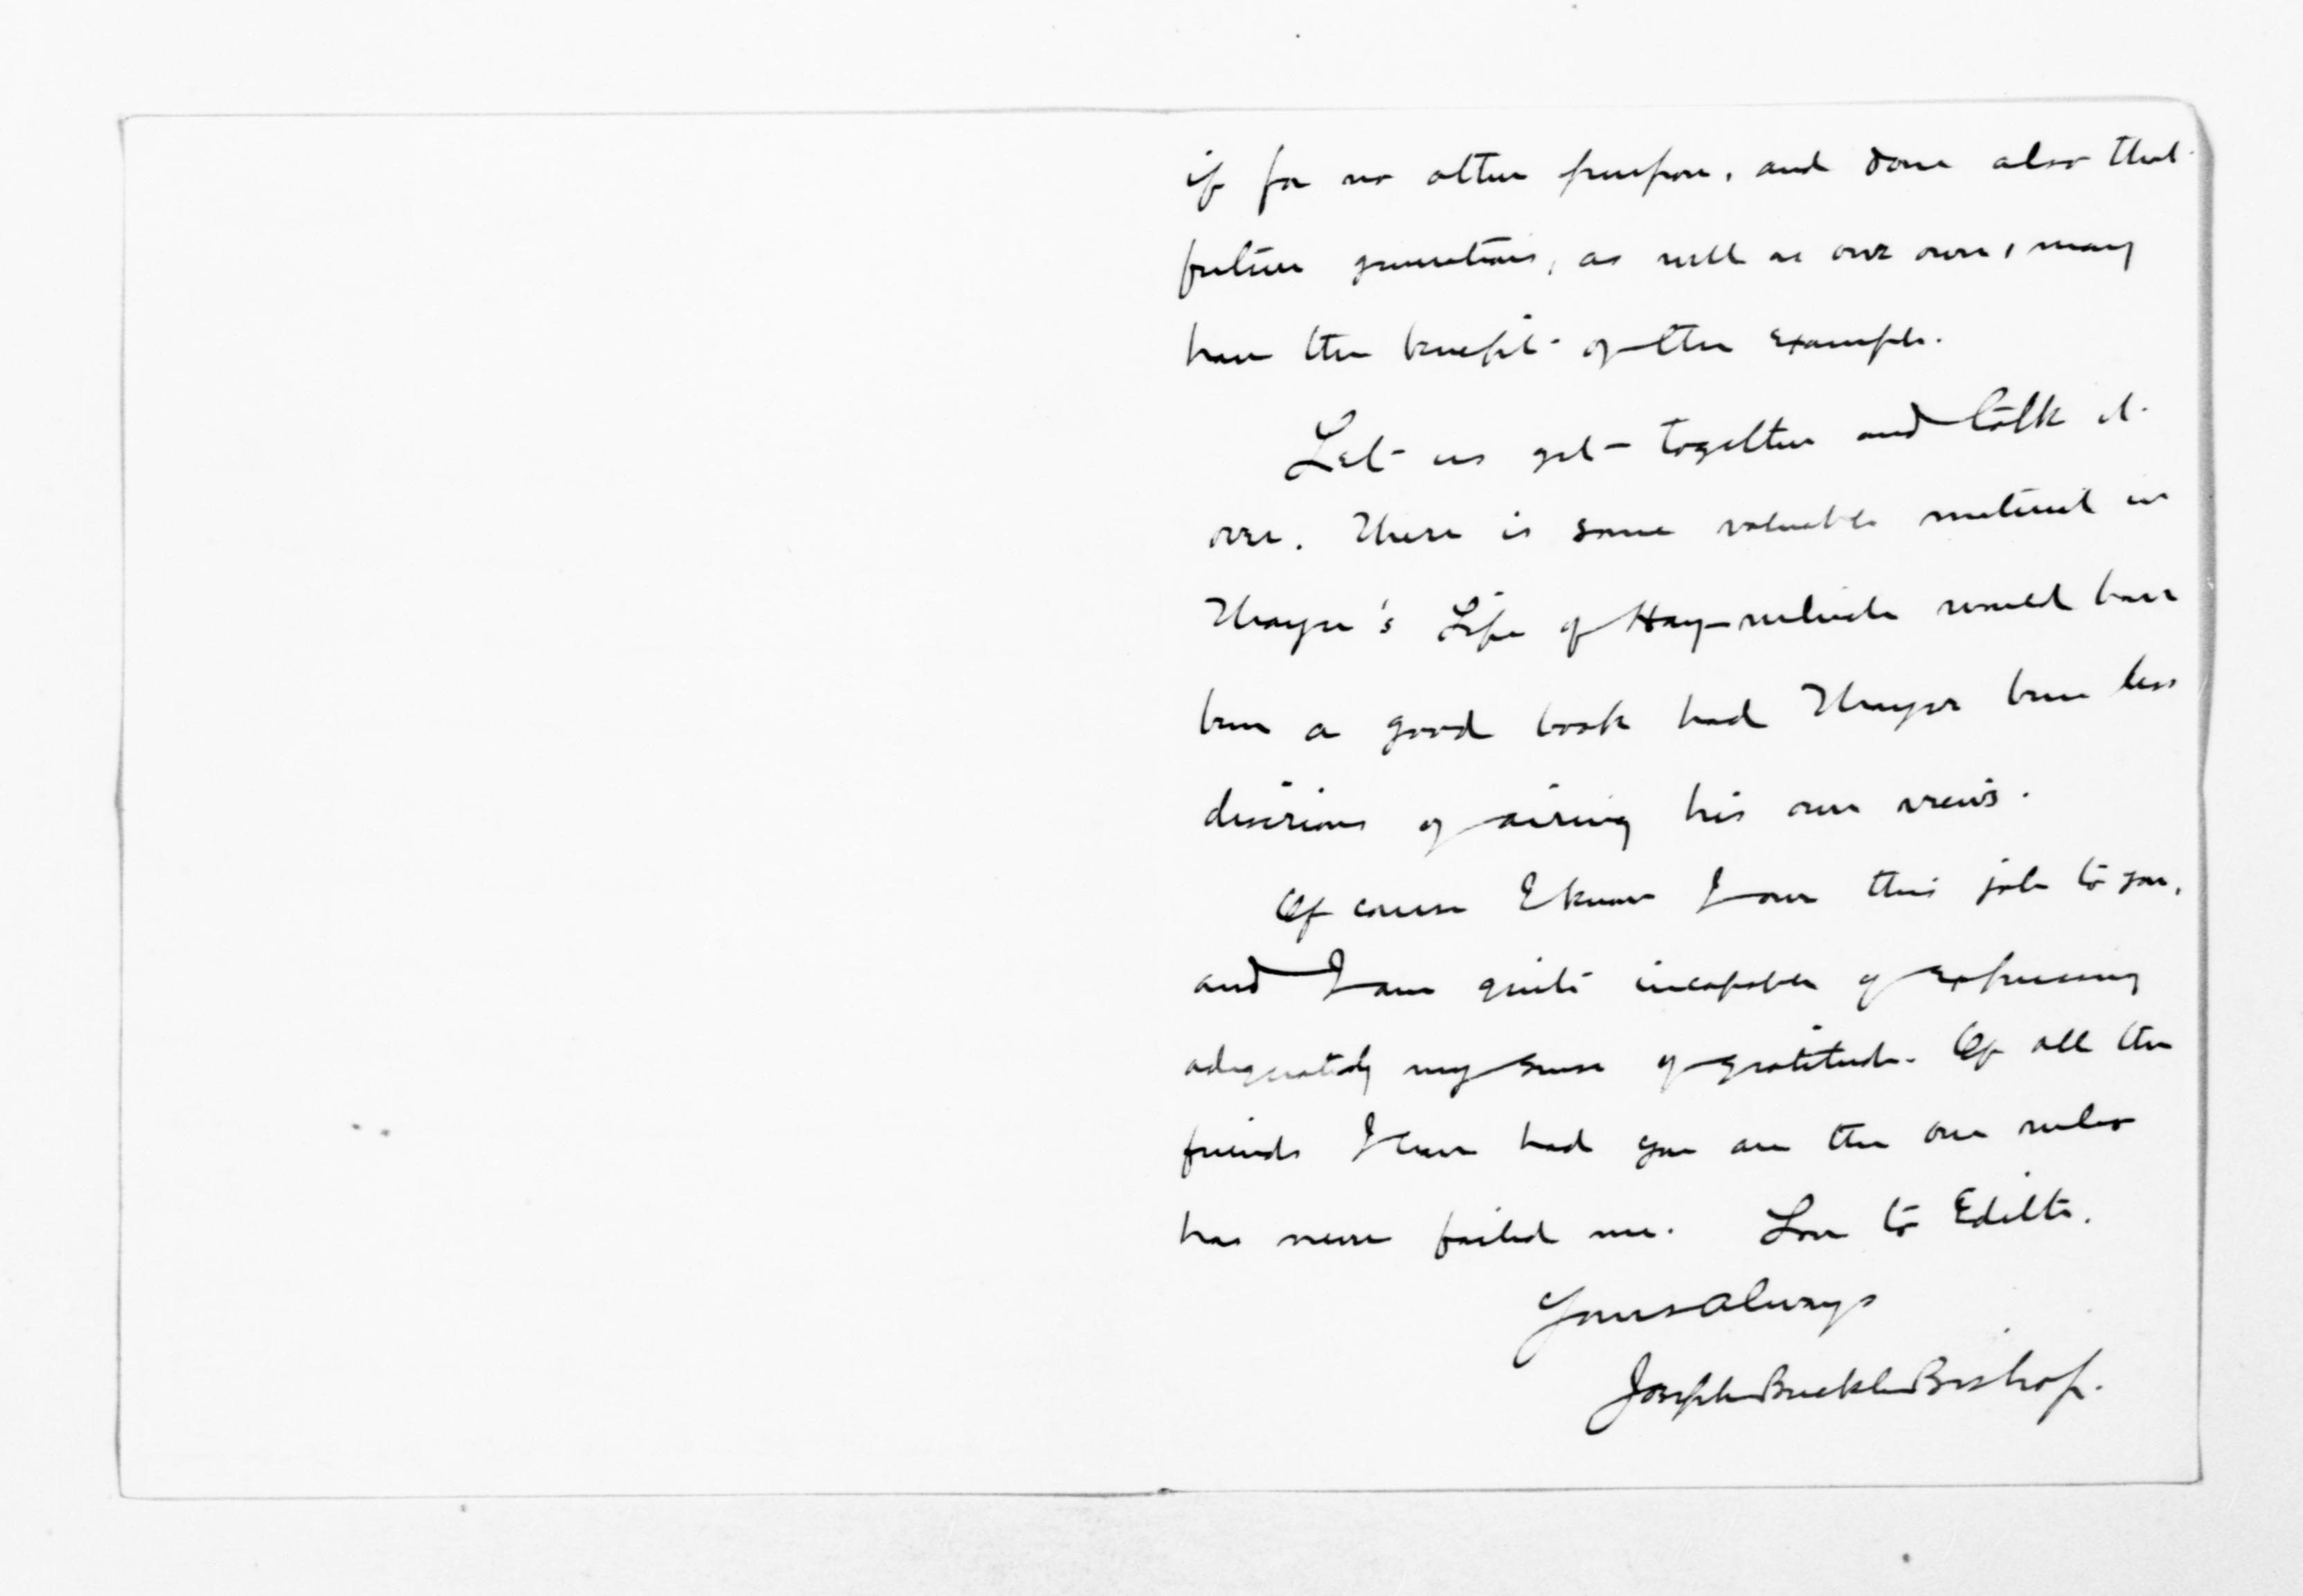 if for no other purpose, and done also that
future generations, as well as our own, may
have the benefit of the example.
Let us get together and talk it
over. There is some valuable material in
Thayer's Life of Hay which would have
been a good book had Thayer been less
desirious of airing his own views.
Of course I know I owe this job to you,
and I am quite incapable of expressing
adequately my sense of gratitude. Of all the
friends I have had you are the one who
has never failed me. Love to Edith.
Yours always
Joseph Bucklin Bishop.